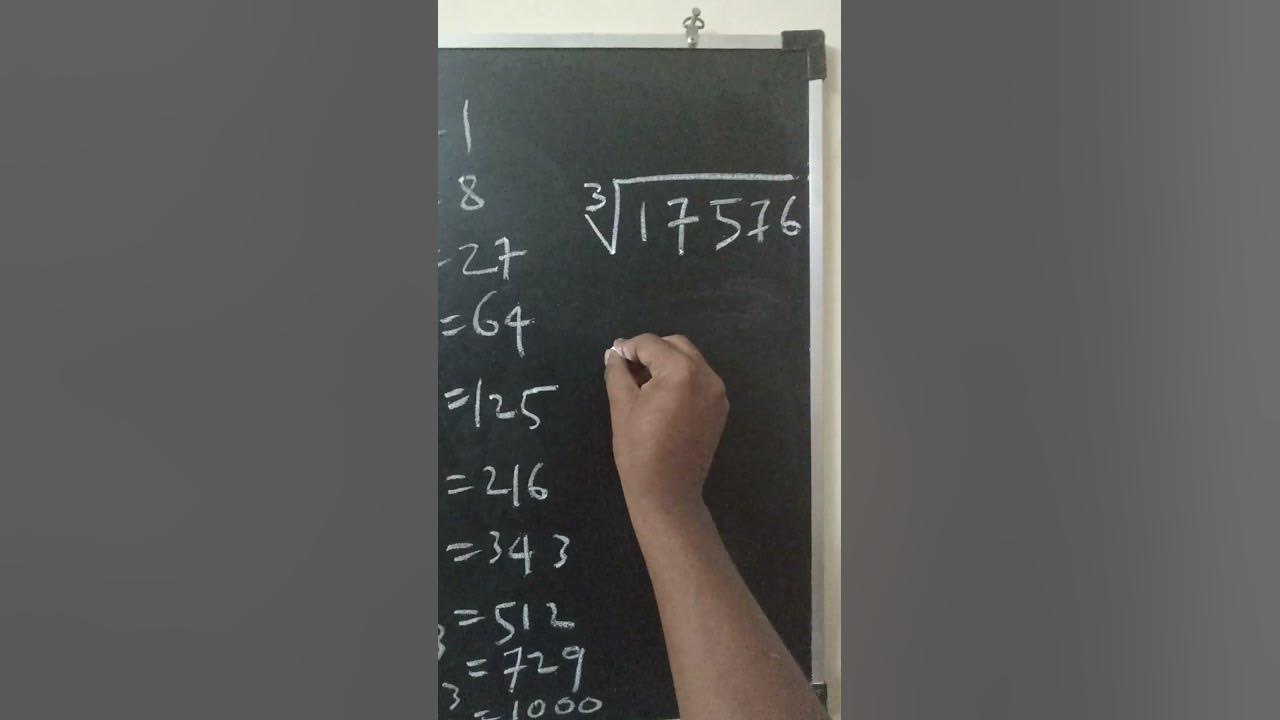 = 1
= 8
= 27
= 64
= 125
= 216
= 343
3 = 512
= 729
3 = 1000
∛17576